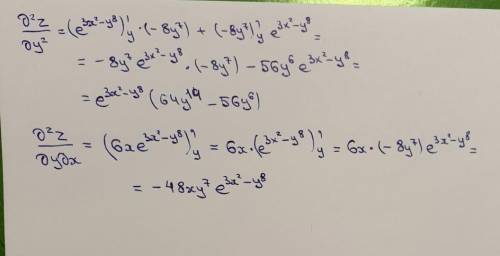 ∂²z/∂y² = (e^{3x²-y⁸})'_y · (-8y⁷) + (-8y⁷)'_y e^{3x²-y⁸} =
= -8y⁷ e^{3x²-y⁸} · (-8y⁷) - 56y⁶ e^{3x²-y⁸} =
= e^{3x²-y⁸} (64y¹⁴ - 56y⁶)
∂²z/∂y∂x = (6xe^{3x²-y⁸})'_y = 6x · (e^{3x²-y⁸})'_y = 6x · (-8y⁷) e^{3x²-y⁸} =
= -48xy⁷ e^{3x²-y⁸}